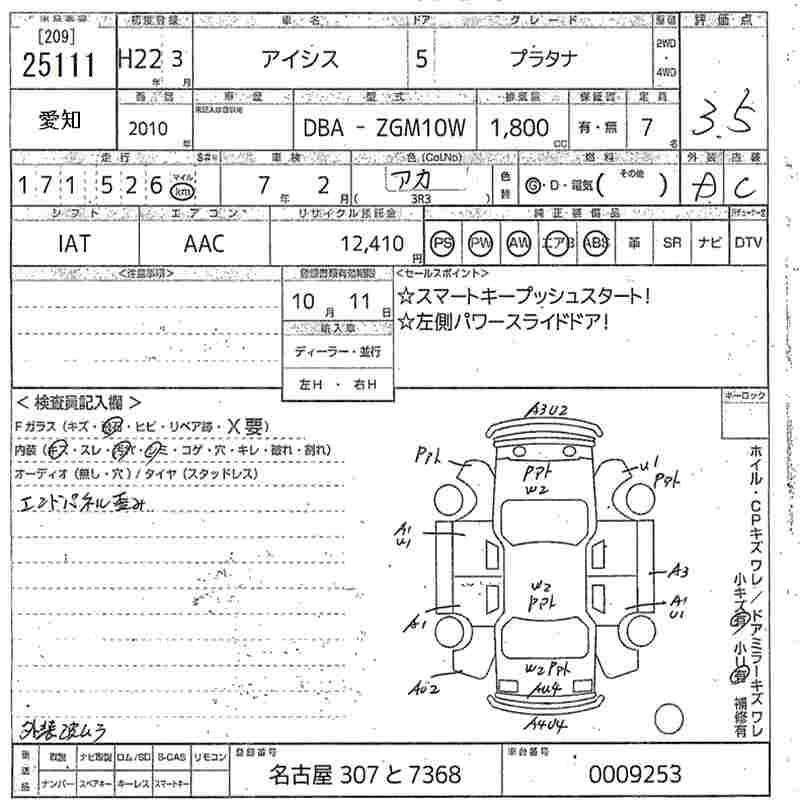 [209]
25111
初度登録
車名
ドア
グレード
評価点
H22年 3月
アイシス
5
プラタナ
2WD・4WD
3.5
愛知
車歴
型式
排気量
保証書
定員
2010年
DBA - ZGM10W
1,800cc
有・無
7名
走行
車検
色(Col.No)
燃料
外装
内装
171526
マイル
km
7年 2月
アカ
(3R3)
色替
G・D・電気(その他)
A
C
シフト
エアコン
リサイクル預託金
純正装備品
IAT
AAC
12,410円
PS
PW
AW
エアB
ABS
革
SR
ナビ
DTV
<注意事項>
登録書類有効期限
<セールスポイント>
10月 11日
☆スマートキープッシュスタート!
☆左側パワースライドドア!
輸入車
ディーラー・並行
左H ・ 右H
キーロック
<検査員記入欄>
Fガラス(キズ・飛石・ヒビ・リペア跡・X要)
内装(キズ・スレ・汚れ・シミ・コゲ・穴・キレ・破れ・割れ)
オーディオ(無し・穴)/タイヤ(スタッドレス)
エンドパネル歪み
外装波ムラ
A3U2
Pпト
U1
A1
U1
W2
A3
A1
U1
A1
W2
AU2
AU4
A4U4
ホイル・CPキズワレ/ドアミラーキズワレ
小キズ有/小U有 補修有
後送品
取説
ナビ取説
ロム/SD
B-CAS
リモコン
ナンバー
スペアキー
キーレス
スマートキー
登録番号
名古屋 307 と 7368
車台番号
0009253